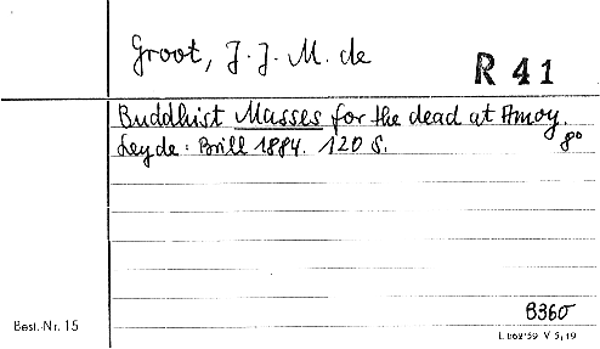 Groot, J. J. M. de
R 41
Buddhist Masses for the dead at Amoy.
Leyde: Brill 1884. 120 S. 8°
8360
Best.-Nr. 15
V 5, 19